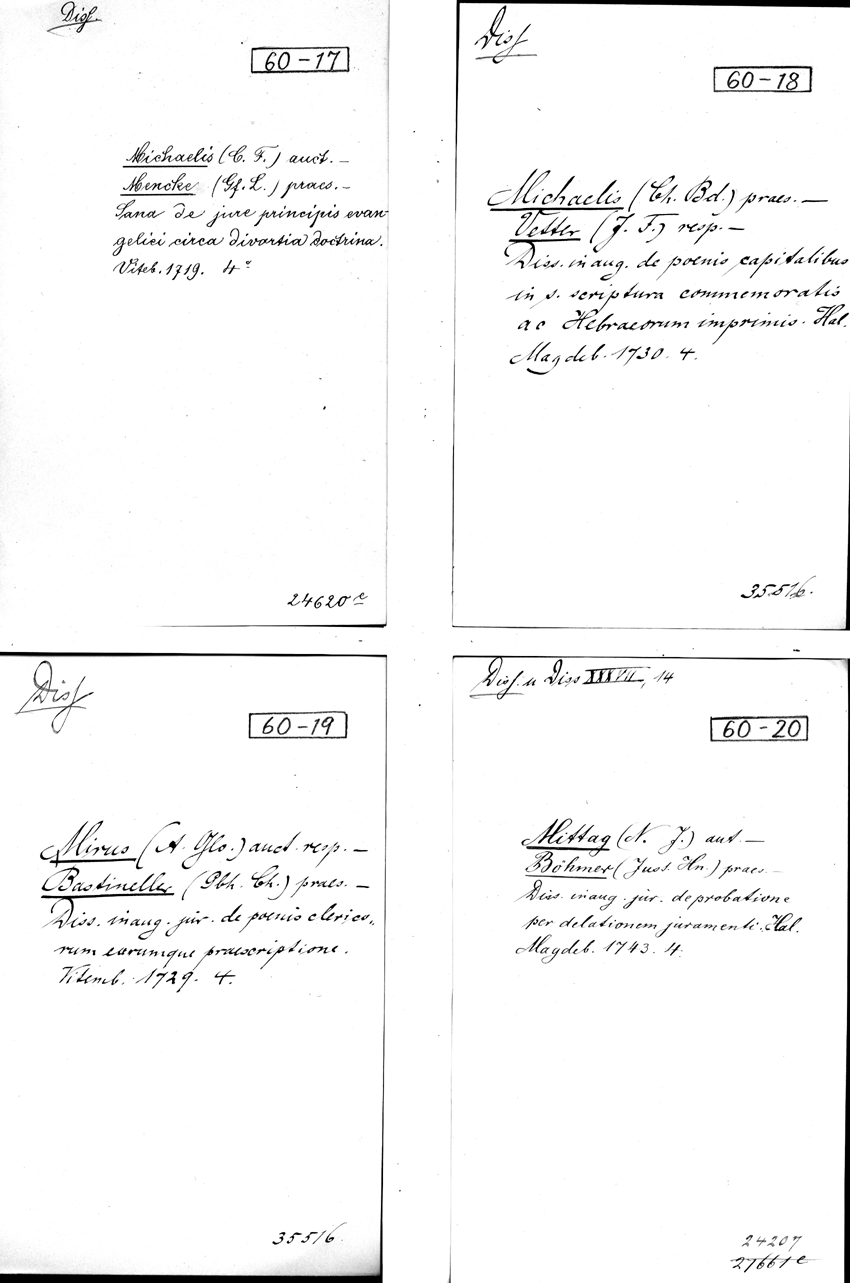 Diss.
60-17
Michaelis (C. F.) auct. —
Mencke (Gf. L.) praes. —
Sana de jure principis evan-
gelici circa divortia doctrina.
Viteb. 1719. 4°
24620 e
Diss
60-18
Michaelis (Ch. Bd.) praes. —
Vetter (J. F.) resp. —
Diss. inaug. de poenis capitalibus
in s. scriptura commemoratis
ac Hebraeorum imprimis. Hal.
Magdeb. 1730. 4.
35516.
Diss
60-19
Mirus (A. Glo.) auct. resp. —
Bastineller (Gbh. Ch.) praes. —
Diss. inaug. jur. de poenis clerico-
rum earumque praescriptione.
Vitemb. 1729. 4.
35516
Diss. u Diss XXXVII, 14
60-20
Mittag (N. J.) aut. —
Böhmer (Just. Hn.) praes. —
Diss. inaug. jur. de probatione
per delationem juramenti. Hal.
Magdeb. 1743. 4.
24207
27661 e